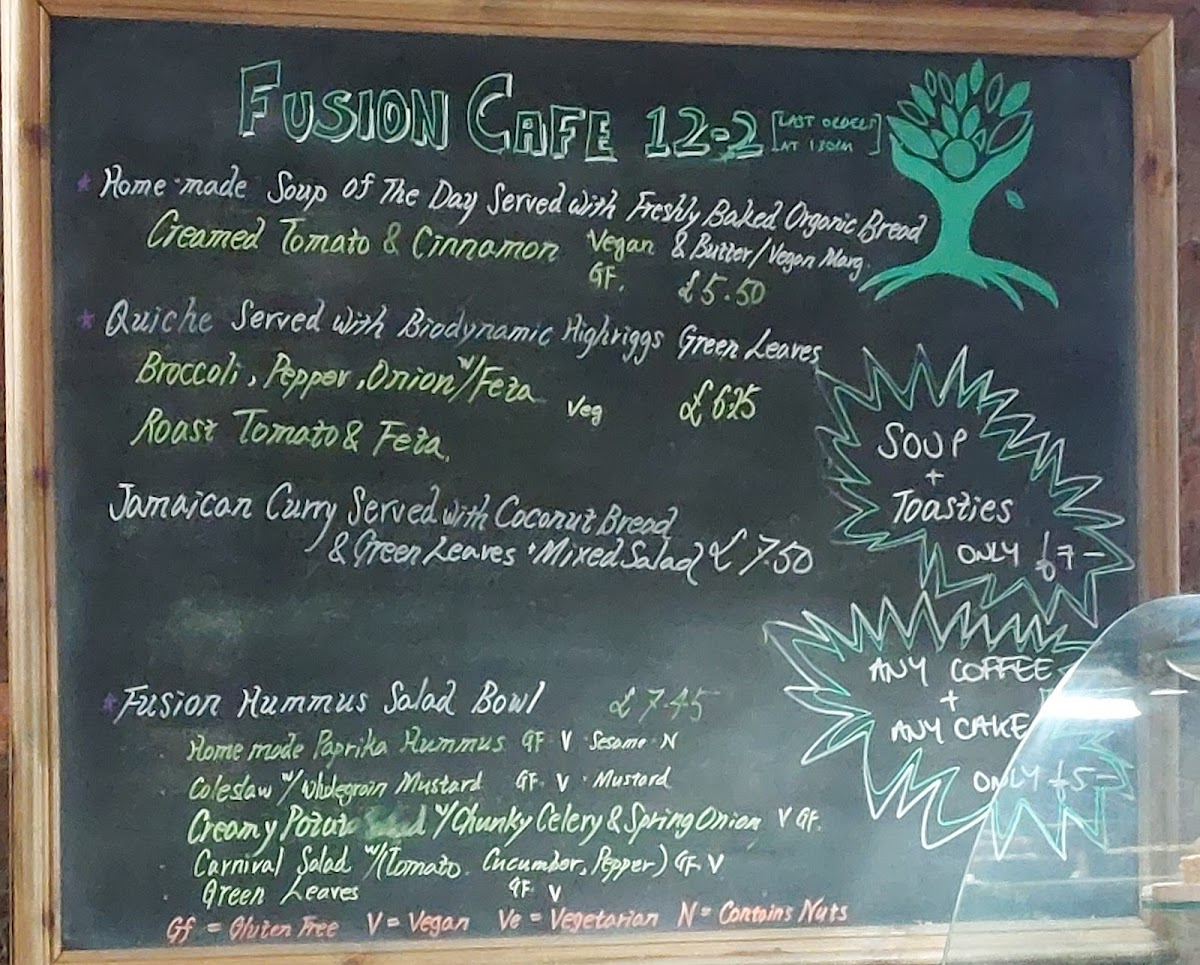 FUSION CAFE 12-2 [LAST ORDERS
AT 1 30PM]
* Home-made Soup Of The Day Served with Freshly Baked Organic Bread
Creamed Tomato & Cinnamon Vegan & Butter/Vegan Marg.
GF. £5.50
* Quiche Served with Biodynamic Highriggs Green Leaves
Broccoli, Pepper, Onion w/ Feta Veg £6.25
Roast Tomato & Feta.
SOUP
+
Toasties
ONLY £7-
Jamaican Curry Served with Coconut Bread
& Green Leaves + Mixed Salad £7.50
ANY COFFEE
+
ANY CAKE
ONLY £5-
* Fusion Hummus Salad Bowl £7.45
Home made Paprika Hummus GF V Sesame N
Coleslaw w/ Wholegrain Mustard GF. V. Mustard
Creamy Potato Salad w/ Chunky Celery & Spring Onion V GF.
Carnival Salad w/ (Tomato. Cucumber, Pepper) GF. V
Green Leaves GF V
Gf = Gluten Free V = Vegan Ve = Vegetarian N = Contains Nuts